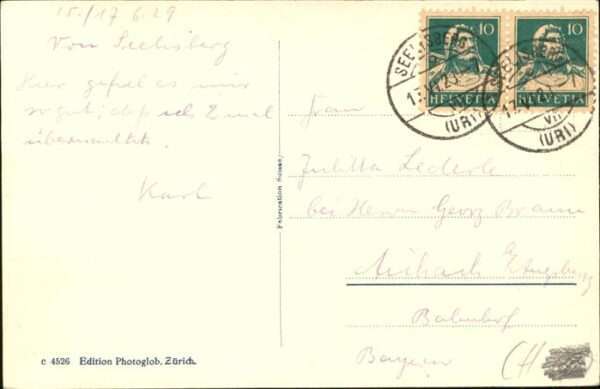 15./17 6.29
Von Seelisberg
Hier gefiel es mir
so gut, daß ich 2 mal
übernachtete.
Karl
Fabrication Suisse.
c 4526 Edition Photoglob, Zürich.
10 10
HELVETIA HELVETIA
SEELISBERG
(URI)
SEELISBERG
(URI)
Frau
Julitta Lederle
bei Herrn Georg Braun
Aichach b/Augsburg
Bahnhof
Bayern